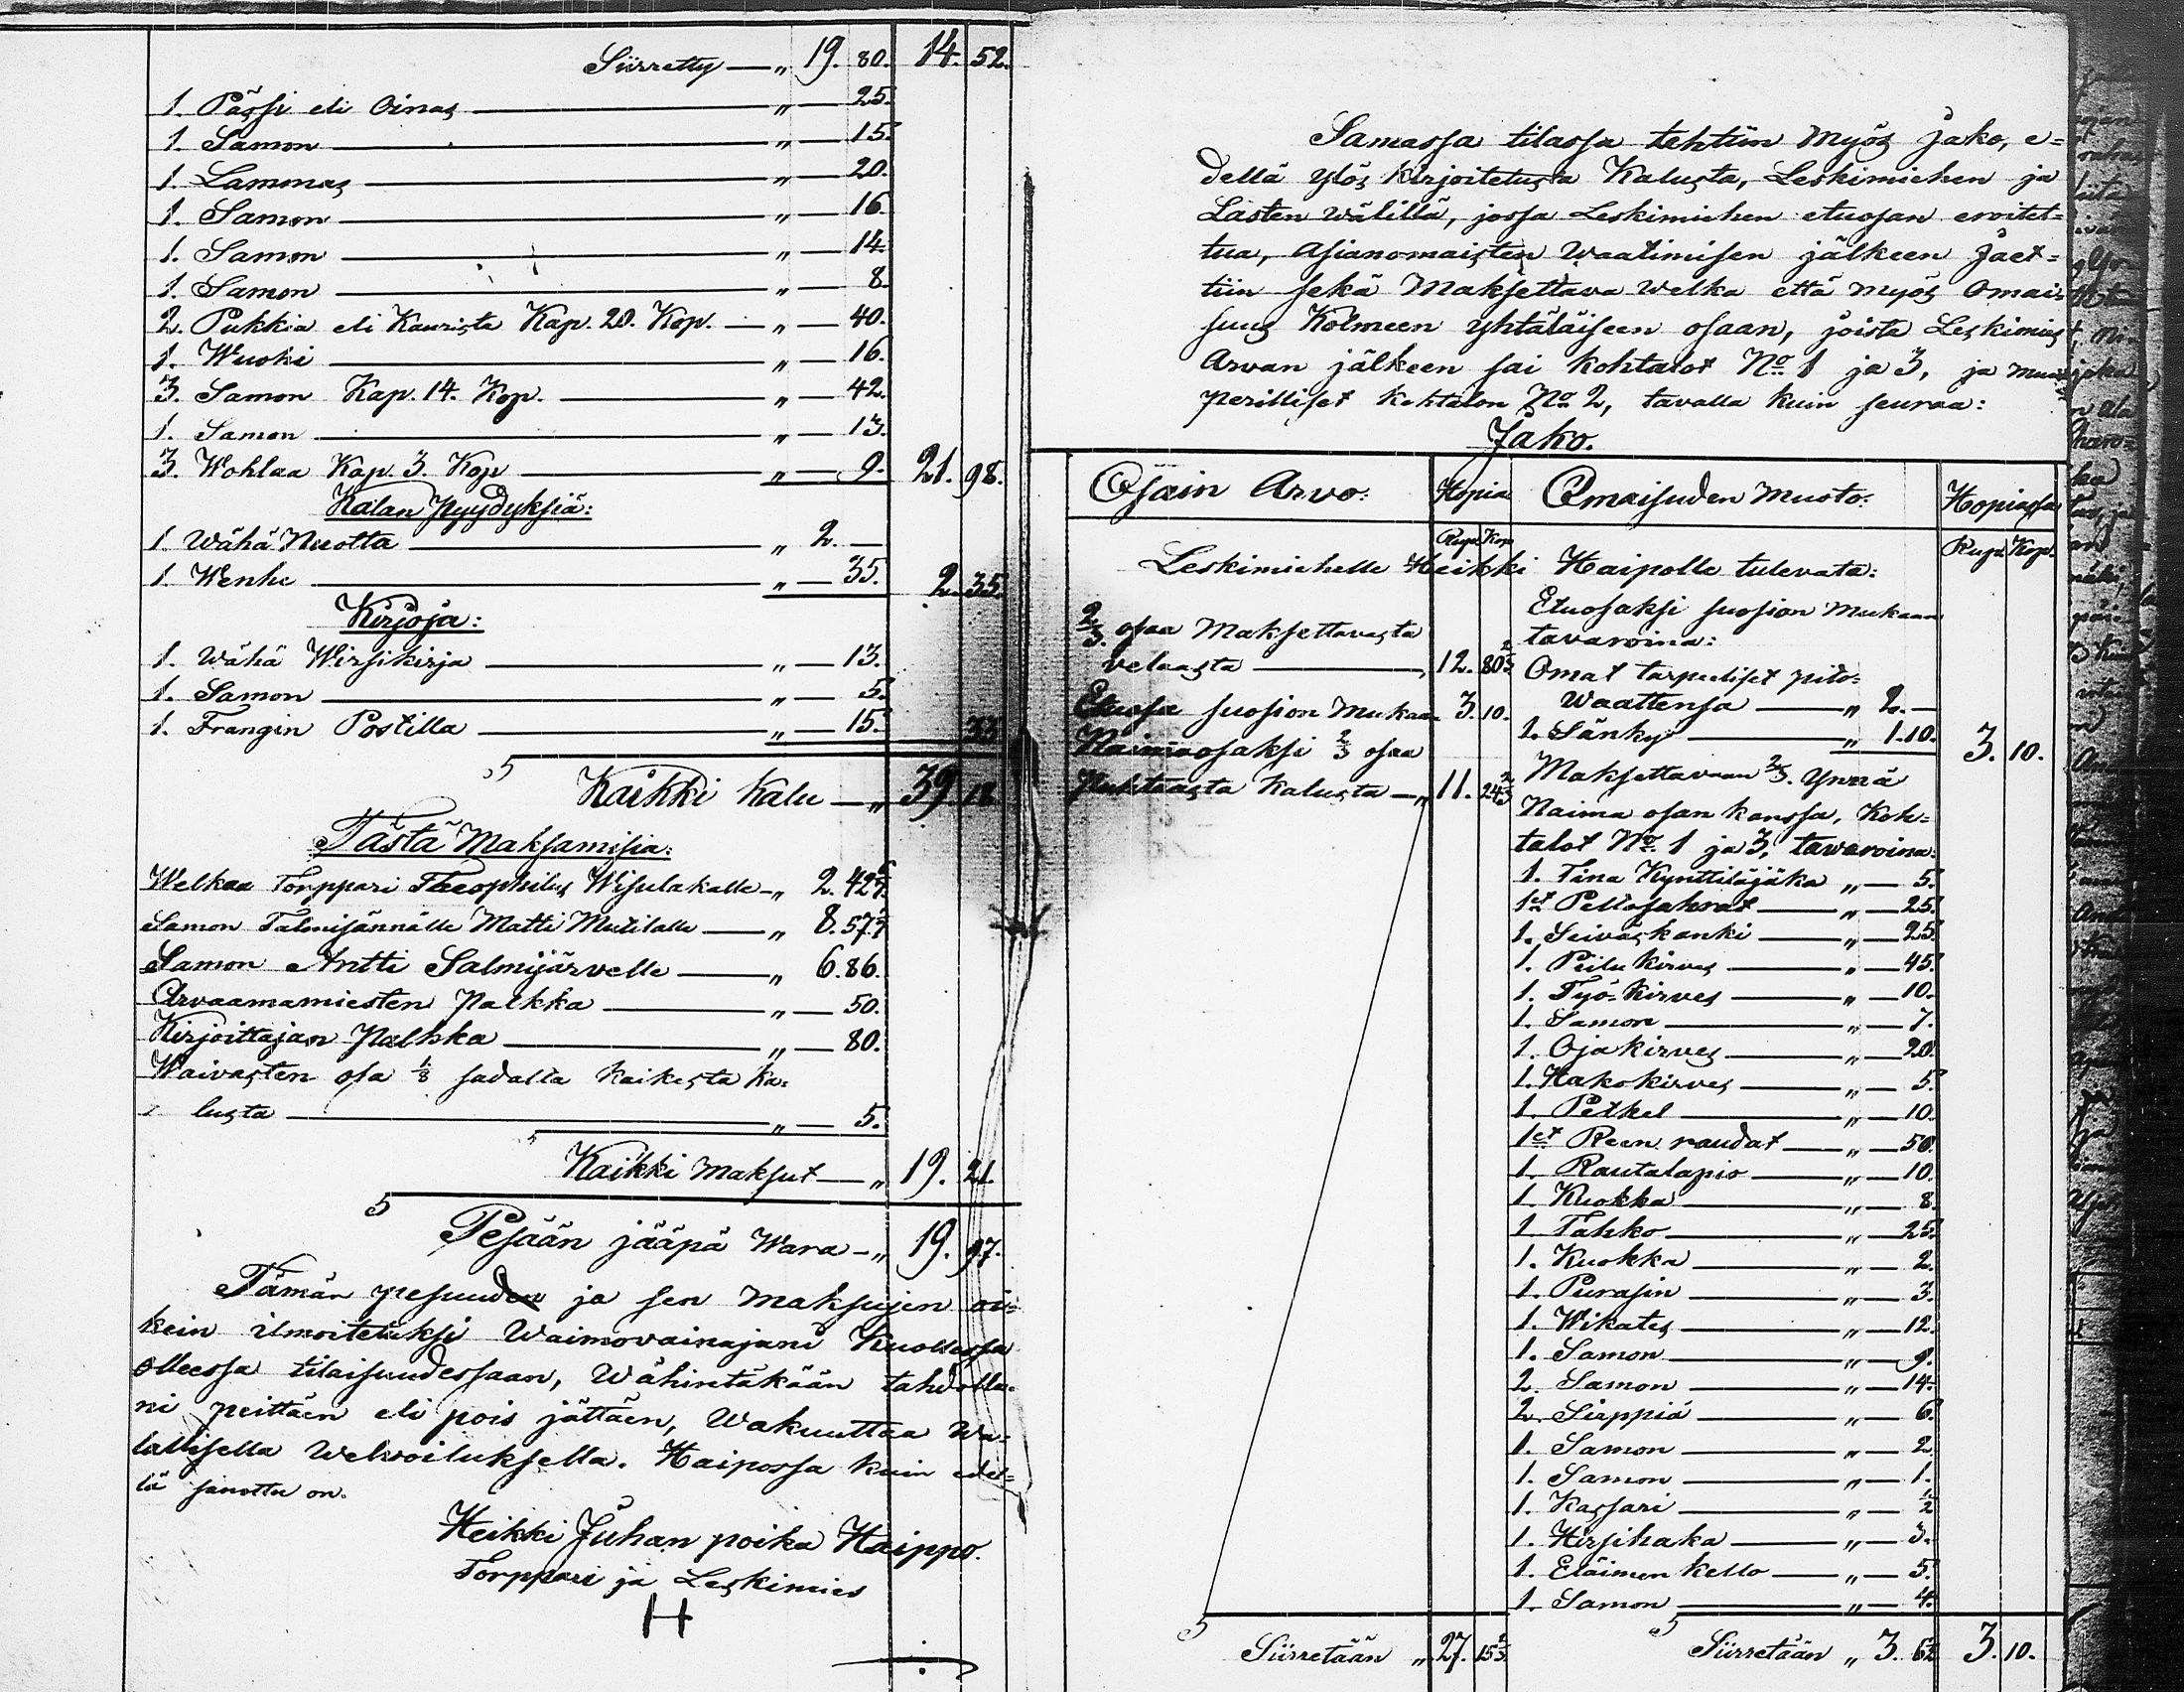 Siirretty — „ 19. 80. 14. 52.
1. Pässi eli Oinas — „ — 25.
1. Samon — „ — 15.
1. Lammas — „ — 20.
1. Samon — „ — 16.
1. Samon — „ — 14.
1. Samon — „ — 8.
2. Pukkia eli Kaurista Kap. 20. Kop. — „ — 40.
1. Wuohi — „ — 16.
3. Samon Kap. 14. Kop. — „ — 42.
1. Samon — „ — 13.
3. Wohlaa Kap. 3. Kop — „ — 9. 21. 98.
Kalan Pyydyksiä:
1. Wähä Nuotta — „ 2. —
1. Wenhe — „ — 35. 2. 35.
Kirjoja:
1. Wähä Wirsikirja — „ — 13.
1. Samon — „ — 5.
1. Frangin Postilla — „ — 15. 33
Kaikki Kalu — „ 39 18
Tästä Maksamisia:
Welkaa Torppari Theophilus Wisulakalle — „ 2. 42 6/7
Samon Talonisännälle Matti Mutilalle — „ 8. 57 1/7
Samon Antti Salmijärvelle — „ 6. 86.
Arvaamamiesten Palkka — „ — 50.
Kirjoittajan Palkka — „ — 80.
Waivasten osa 1/8 sadalta kaikesta ka=
lusta — „ — 5.
Kaikki maksut — „ 19. 21.
Pesään jääpä Wara — „ 19. 97.
Tämän pesuuden ja sen maksujen oi=
kein ilmoitetuksi Waimovainajani Kuollessa
olleessa tilaisuudessaan, Wähintäkään tahdolla=
ni peittäen eli pois jättäen, Wakuuttaa Wa=
lallisella Welvoituksella. Haipossa kuin edel=
lä sanottu on.
Heikki Juhan poika Haippo.
Torppari ja Leskimies
H
Samassa tilassa tehtiin Myös Jako, e=
dellä ylös Kirjoitetusta Kalusta, Leskimiehen ja
Lasten wälillä, jossa Leskimiehen etuosan eroitet=
tua, Asianomaisten Waatimisen jälkeen Jaet=
tiin sekä Maksettava Welka että myös Omai=
suus Kolmeen yhtäläiseen osaan, joista Leskimies
Arvan jälkeen sai Kohtalot No 1 ja 3, ja muut
perilliset Kohtalon No 2, tavalla kuin seuraa:
Jako.
Osain Arvo: Hopia Omaisuden Muoto: Hopiassa
Rupl Kop Rupl Kop.
Leskimiehelle Heikki Haipolle tulevata:
2/3. osaa Maksettavasta
velasta — 12. 80 2/3
Etuosa suosion Mukaan 3. 10.
Naimaosaksi 2/3 osaa
Puhtaasta Kalusta — „ 11. 24 2/3
Siirretään „ 27. 15 1/3.
Etuosaksi suosion Mukaan
tavaroina:
Omat tarpeeliset pito=
Waattensa — „ 2. —
1. Sänky — „ 1. 10. 3. 10.
Maksettavaan 2/3. Ynnä
Naima osan kanssa, Koh=
talot No 1 ja 3, tavaroina:
1. Tina Kynttiläjäka „ — 5.
1et Peltosahrat — „ — 25.
1. Seiväskanki — „ — 25.
1. Piilu Kirves — „ — 45.
1. Työ-Kirves — „ — 10.
1. Samon — „ — 7.
1. Ojakirves — „ — 20.
1. Hakokirves — „ — 5.
1. Petkel — „ — 10.
1et Reen raudat — „ — 50.
1. Rautalapio — „ — 10.
1. Kuokka — „ — 8.
1. Tahko — „ — 25.
1. Kuokka — „ — 2.
1. Purasin — „ — 3.
1. Wikates — „ — 12.
1. Samon — „ — 9.
2. Samon — „ — 14.
2. Sirppiä — „ — 6.
1. Samon — „ — 2.
1. Samon — „ — 1.
1. Kassari — „ — 1/2
1. Hirsihaka — „ — 3.
1. Eläimen kello — „ — 5.
1. Samon — „ — 4.
Siirretään „ 3. 6 1/2 3. 10.